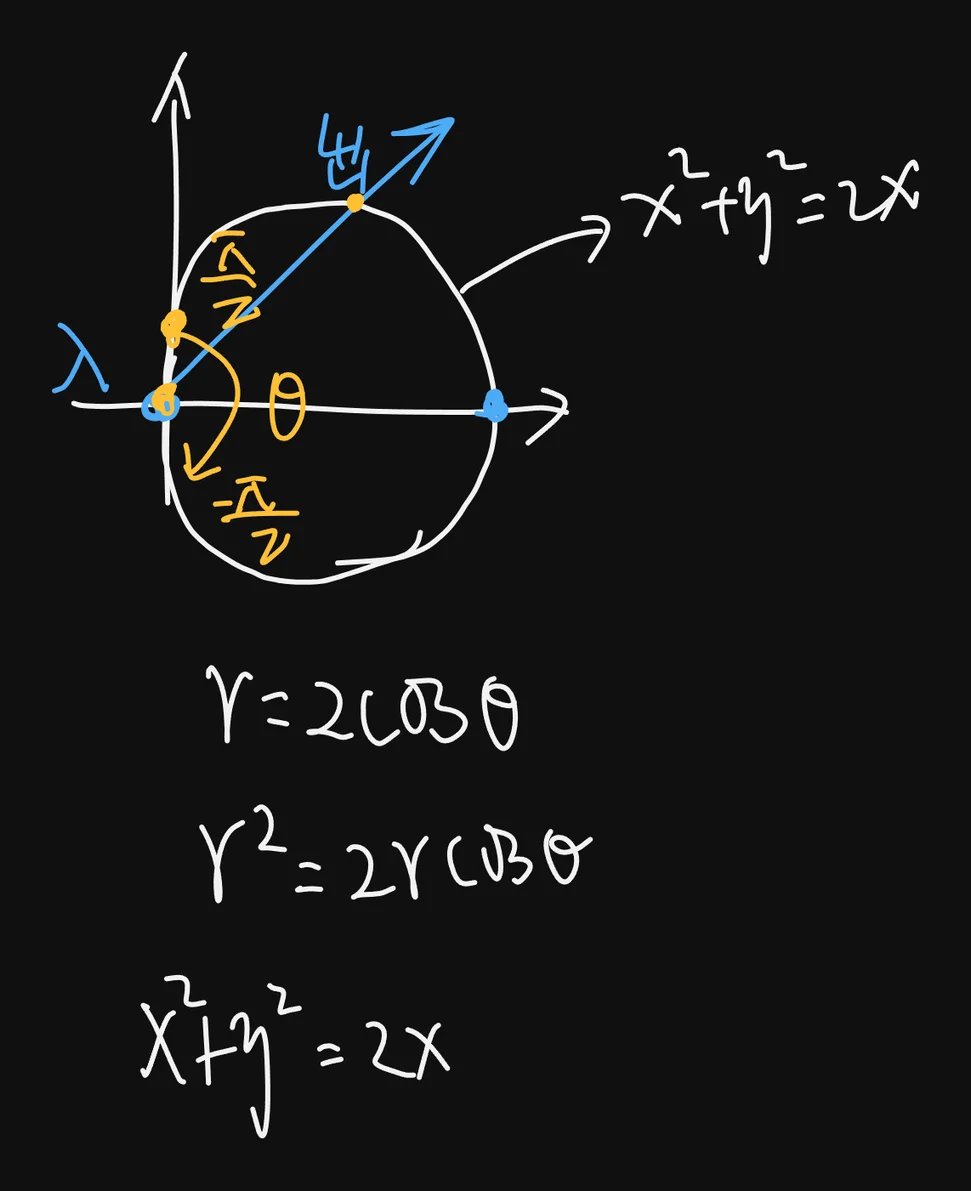 出
x²+y²=2x
π/2
入
θ
-π/2
r=2cosθ
r²=2rcosθ
x²+y²=2x